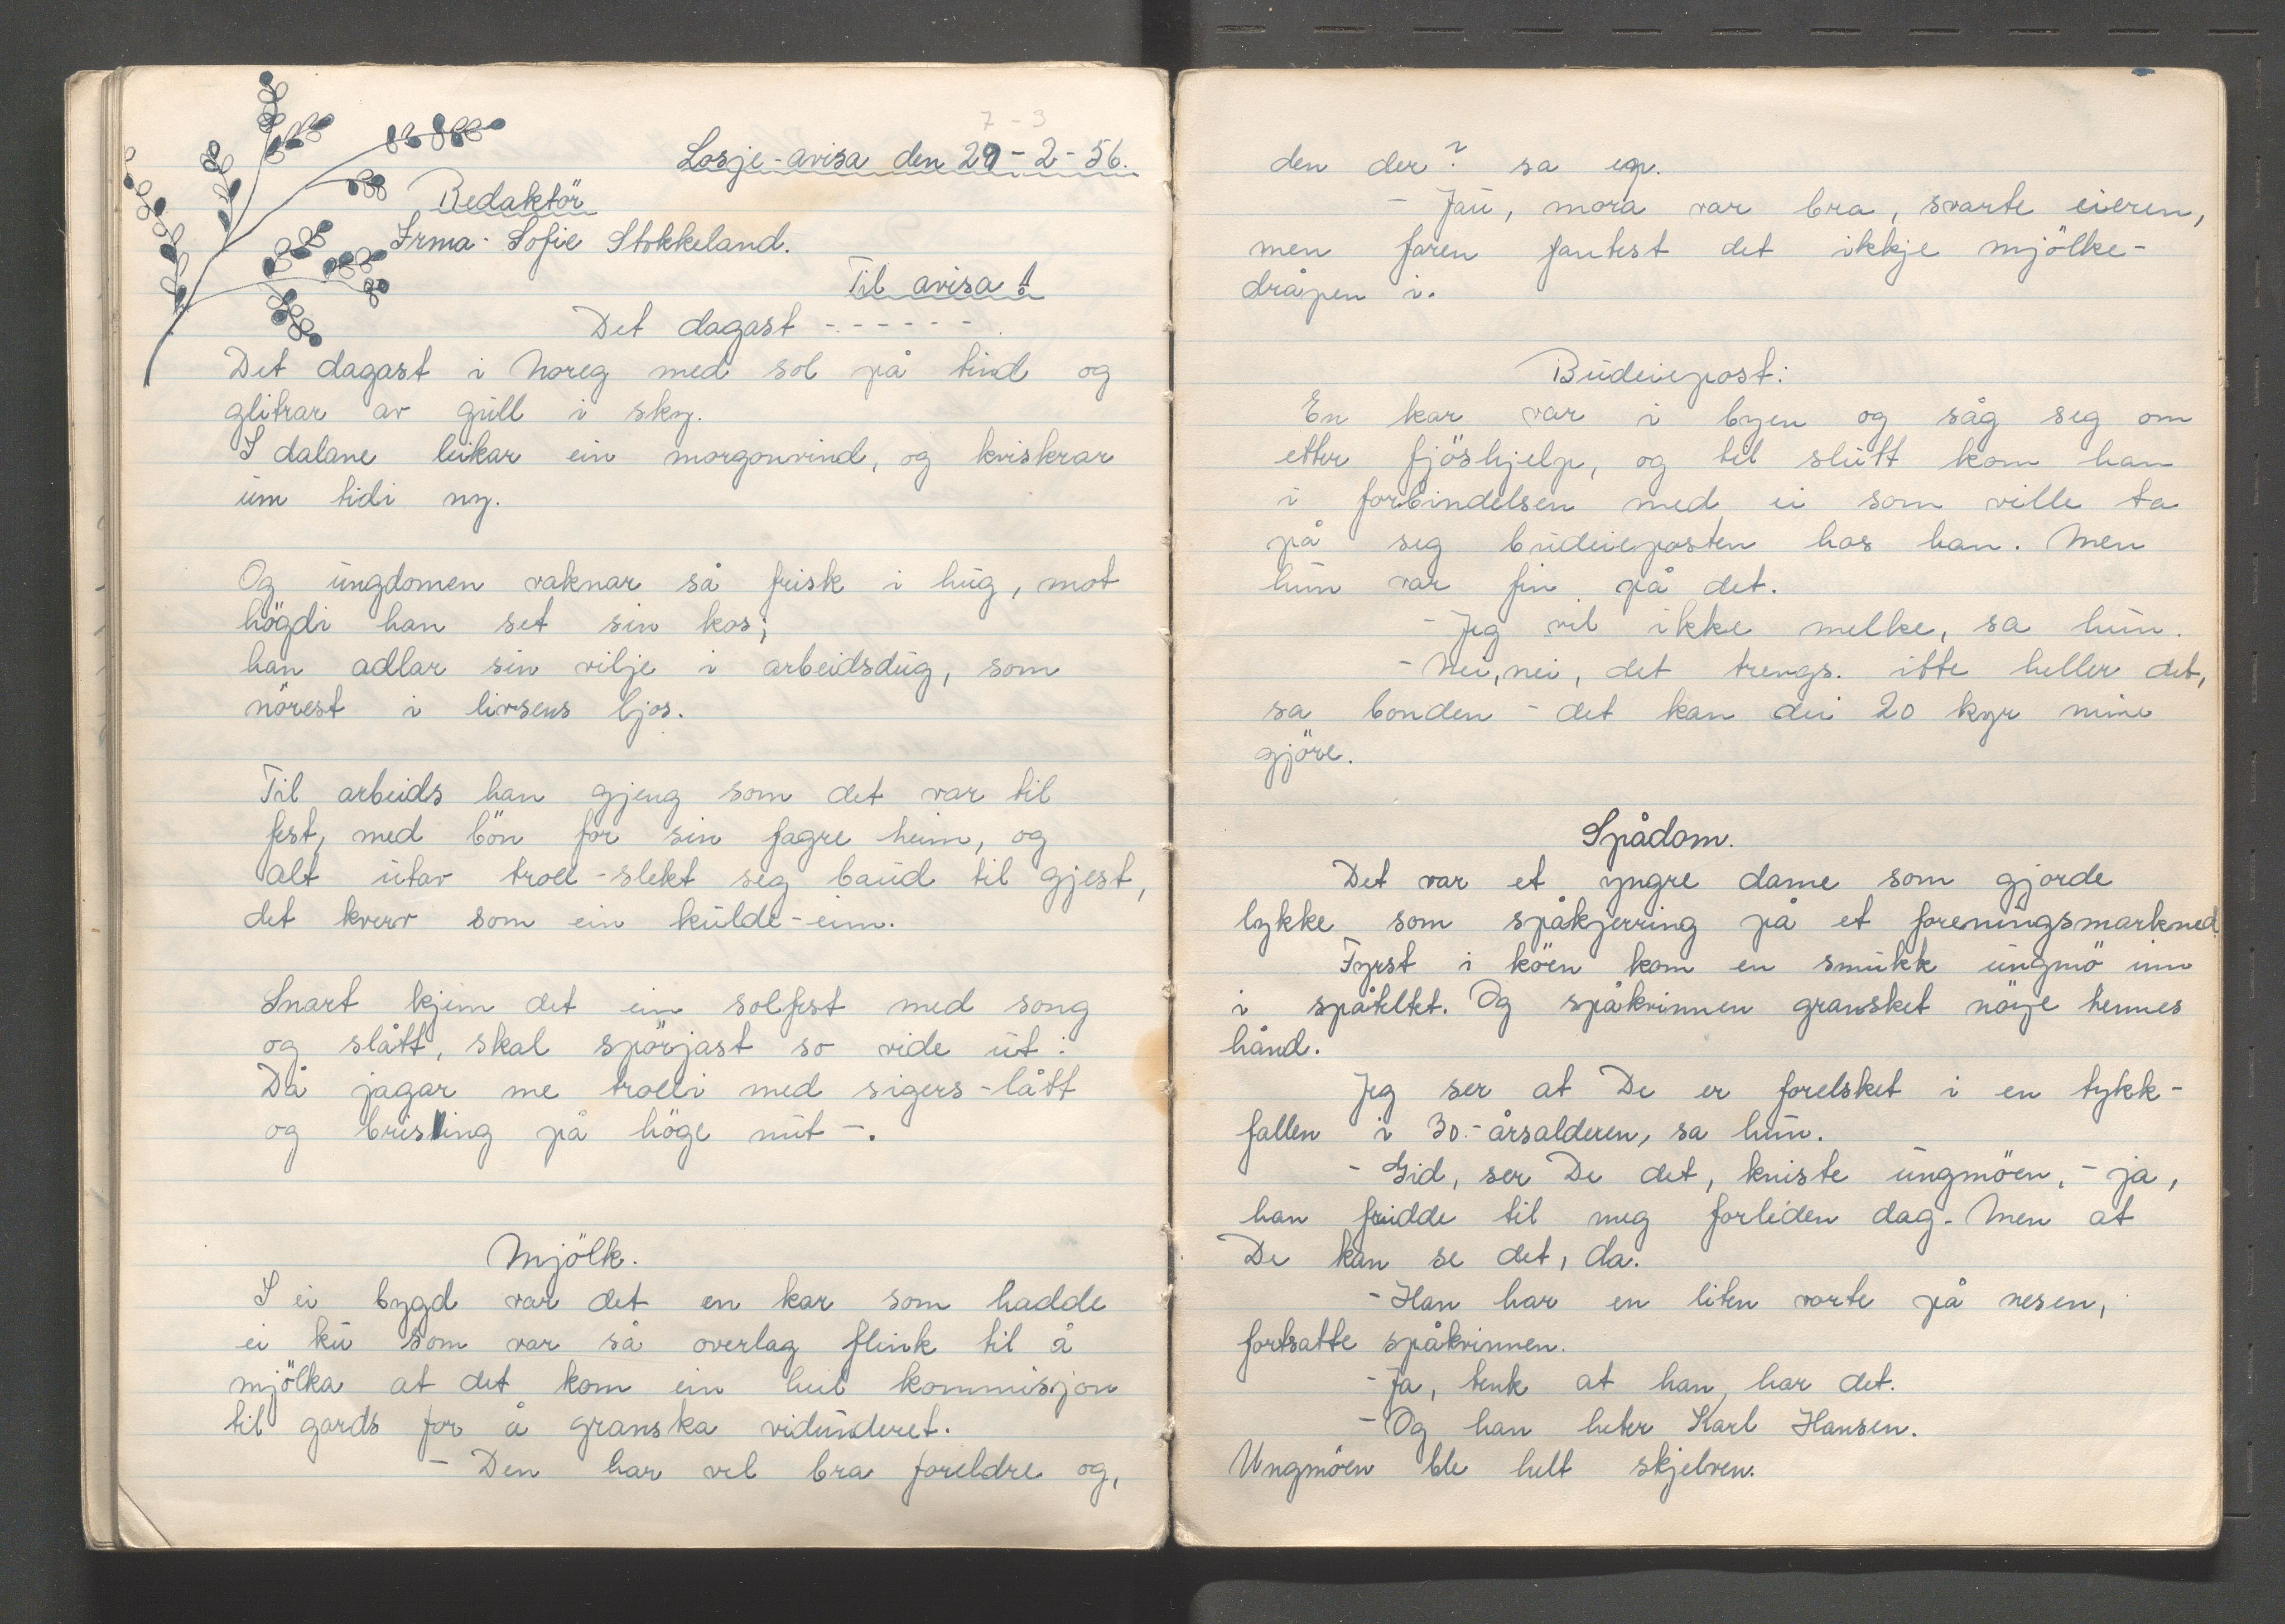 7 - 3
Losje-avisa den 29-2-56.
Redaktör
Irma-Sofie Stokkeland.
Til avisa!
Det dagast ------
Det dagast i Noreg med sol på tind og
glitrar av gull i sky.
I dalane leikar ein morgonvind, og kviskrar
um tidi ny.
Og ungdomen vaknar så frisk i hug, mot
högdi han set sin kos;
han adlar sin vilje i arbeidsdug, som
nörest i livsens ljos.
Til arbeids han gjeng som det var til
fest, med bön for sin fagre heim, og
alt utav troll-slekt seg baud til gjest,
det kverv som ein kulde-eim.
Snart kjem det ein solfest med song
og slått, skal spörjast so vide ut:
Då jagar me trolli med sigers-lått
og brising på höge nut-.
Mjölk.
I ei bygd var det en kar som hadde
ei ku som var så overlag flink til å
mjölka at det kom ein heil kommisjon
til gards for å granska vidunderet.
- Den har vel bra foreldre og,
den der? sa ep.
- Jau, mora var bra, svarte eieren,
men faren fantest det ikkje mjölke-
dråpen i.
Budeiepost:
En kar var i byen og såg seg om
etter fjöshjelp, og til slutt kom han
i forbindelsen med ei som ville ta
på seg budeieposten hos han. Men
hun var fin på det.
- Jeg vil ikke melke, sa hun.
- Nei, nei, det trengs. itte heller det,
sa bonden - det kan dei 20 kyr mine
gjöre.
Spådom.
Det var et yngre dame som gjorde
lykke som spåkjerring på et foreningsmarkned.
Fyrst i köen kom en smukk ungmö inn
i spåteltet. Og spåkvinnen gransket nöye hennes
hånd.
Jeg ser at De er forelsket i en tykk-
fallen i 30.-årsalderen, sa hun.
- Gid, ser De det, kniste ungmöen, - ja,
han fridde til meg forleden dag. Men at
De kan se det, da.
- Han har en liten vorte på nesen,
fortsatte spåkvinnen.
- Ja, tenk at han har det.
- Og han heter Karl Hansen.
Ungmöen ble helt skjelven.